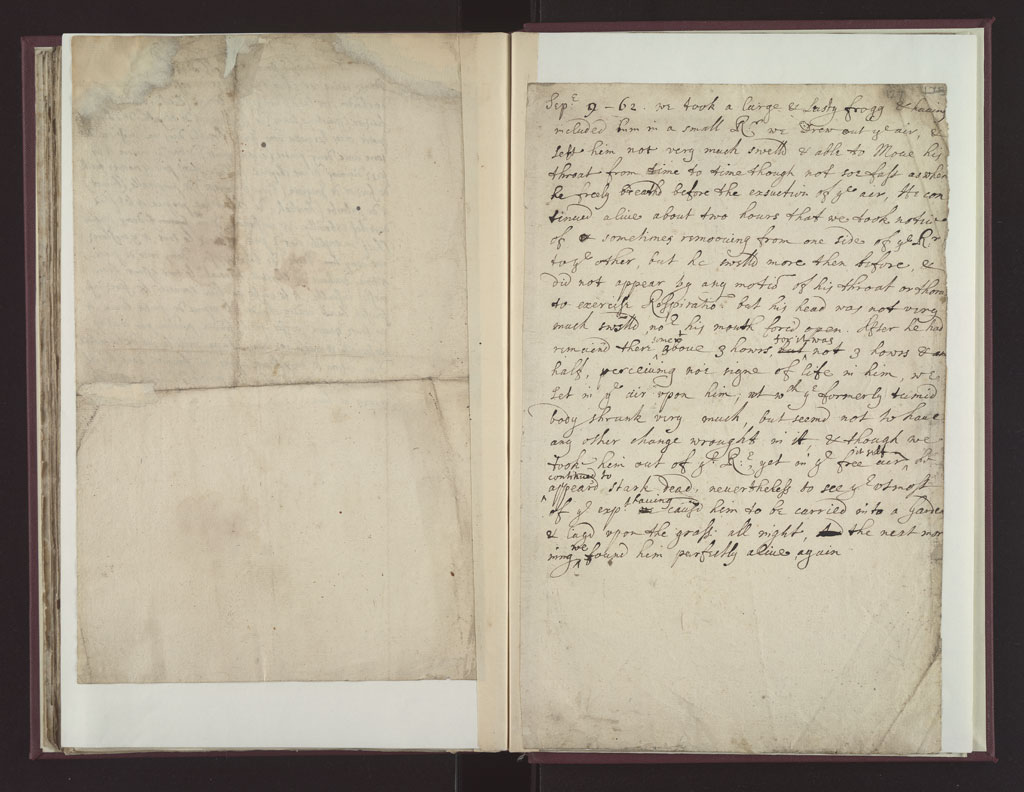 Sepᵗ 9 - 62. we took a large & lusty frogg & having
included him in a small Rʳ we Drew out yᵉ air, &
Left him not very much swelld & able to Moue his
throat from time to time though not soe fast as when
he freely breathd before the exsuction of yᵉ aer, He con
tinued aliue about two hours that we took notice
of & sometimes remoouing from one side of yᵉ Rʳ
to yᵉ other, but he swelld more then before, &
did not appear by any motiō of his throat or thorax
to exercise Respiratiō but his head was not very
much swelld, noʳ his mouth forcd open. After he had
remaind there somewᵗ aboue 3 howrs, but for it was not 3 howrs & an
half, perceiuing noe signe of life in him, we
Let in yᵉ air vpon him, at wᶜʰ yᵉ formerly tumid
body shrunk very much, but seemd not to haue
any other change wrought in it, & though we
took him out of yᵉ Rʳ, yet in yᵉ free air it self he
continued to
appeard stark dead, neuertheless to see yᵉ vtmost
of yᵉ expᵗ having causd him to be carried into a Garden
& layd vpon the grass all night, the next mor
ning we found him perfectly aliue again